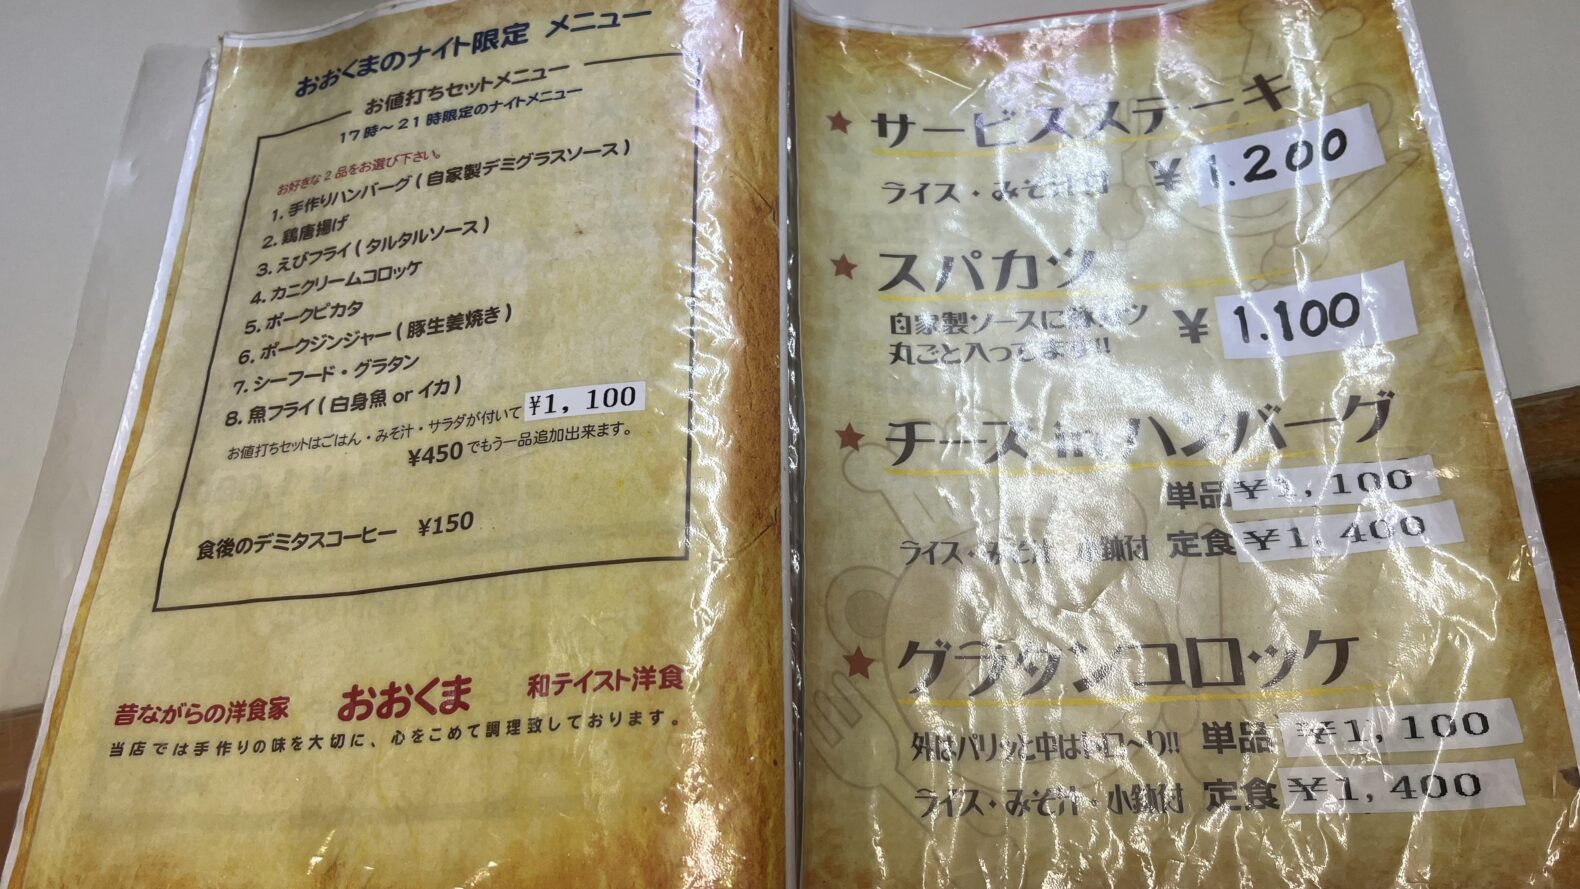 おおくまのナイト限定 メニュー
お値打ちセットメニュー
17時～21時限定のナイトメニュー
お好きな2品をお選び下さい。
1.手作りハンバーグ(自家製デミグラスソース)
2.鶏唐揚げ
3.えびフライ(タルタルソース)
4.カニクリームコロッケ
5.ポークピカタ
6.ポークジンジャー(豚生姜焼き)
7.シーフード・グラタン
8.魚フライ(白身魚 or イカ)
お値打ちセットはごはん・みそ汁・サラダが付いて ¥1,100
¥450でもう一品追加出来ます。
食後のデミタスコーヒー ¥150
昔ながらの洋食家 おおくま 和テイスト洋食
当店では手作りの味を大切に、心をこめて調理致しております。
★ サービスステーキ
ライス・みそ汁付 ¥1.200
★ スパカツ
自家製ソースに豚カツ ¥1.100
丸ごと入ってます!!
★ チーズ in ハンバーグ
単品 ¥1,100
ライス・みそ汁・小鉢付 定食 ¥1,400
★ グラタンコロッケ
外はパリッと中はトロ〜り!! 単品 ¥1,100
ライス・みそ汁・小鉢付 定食 ¥1,400